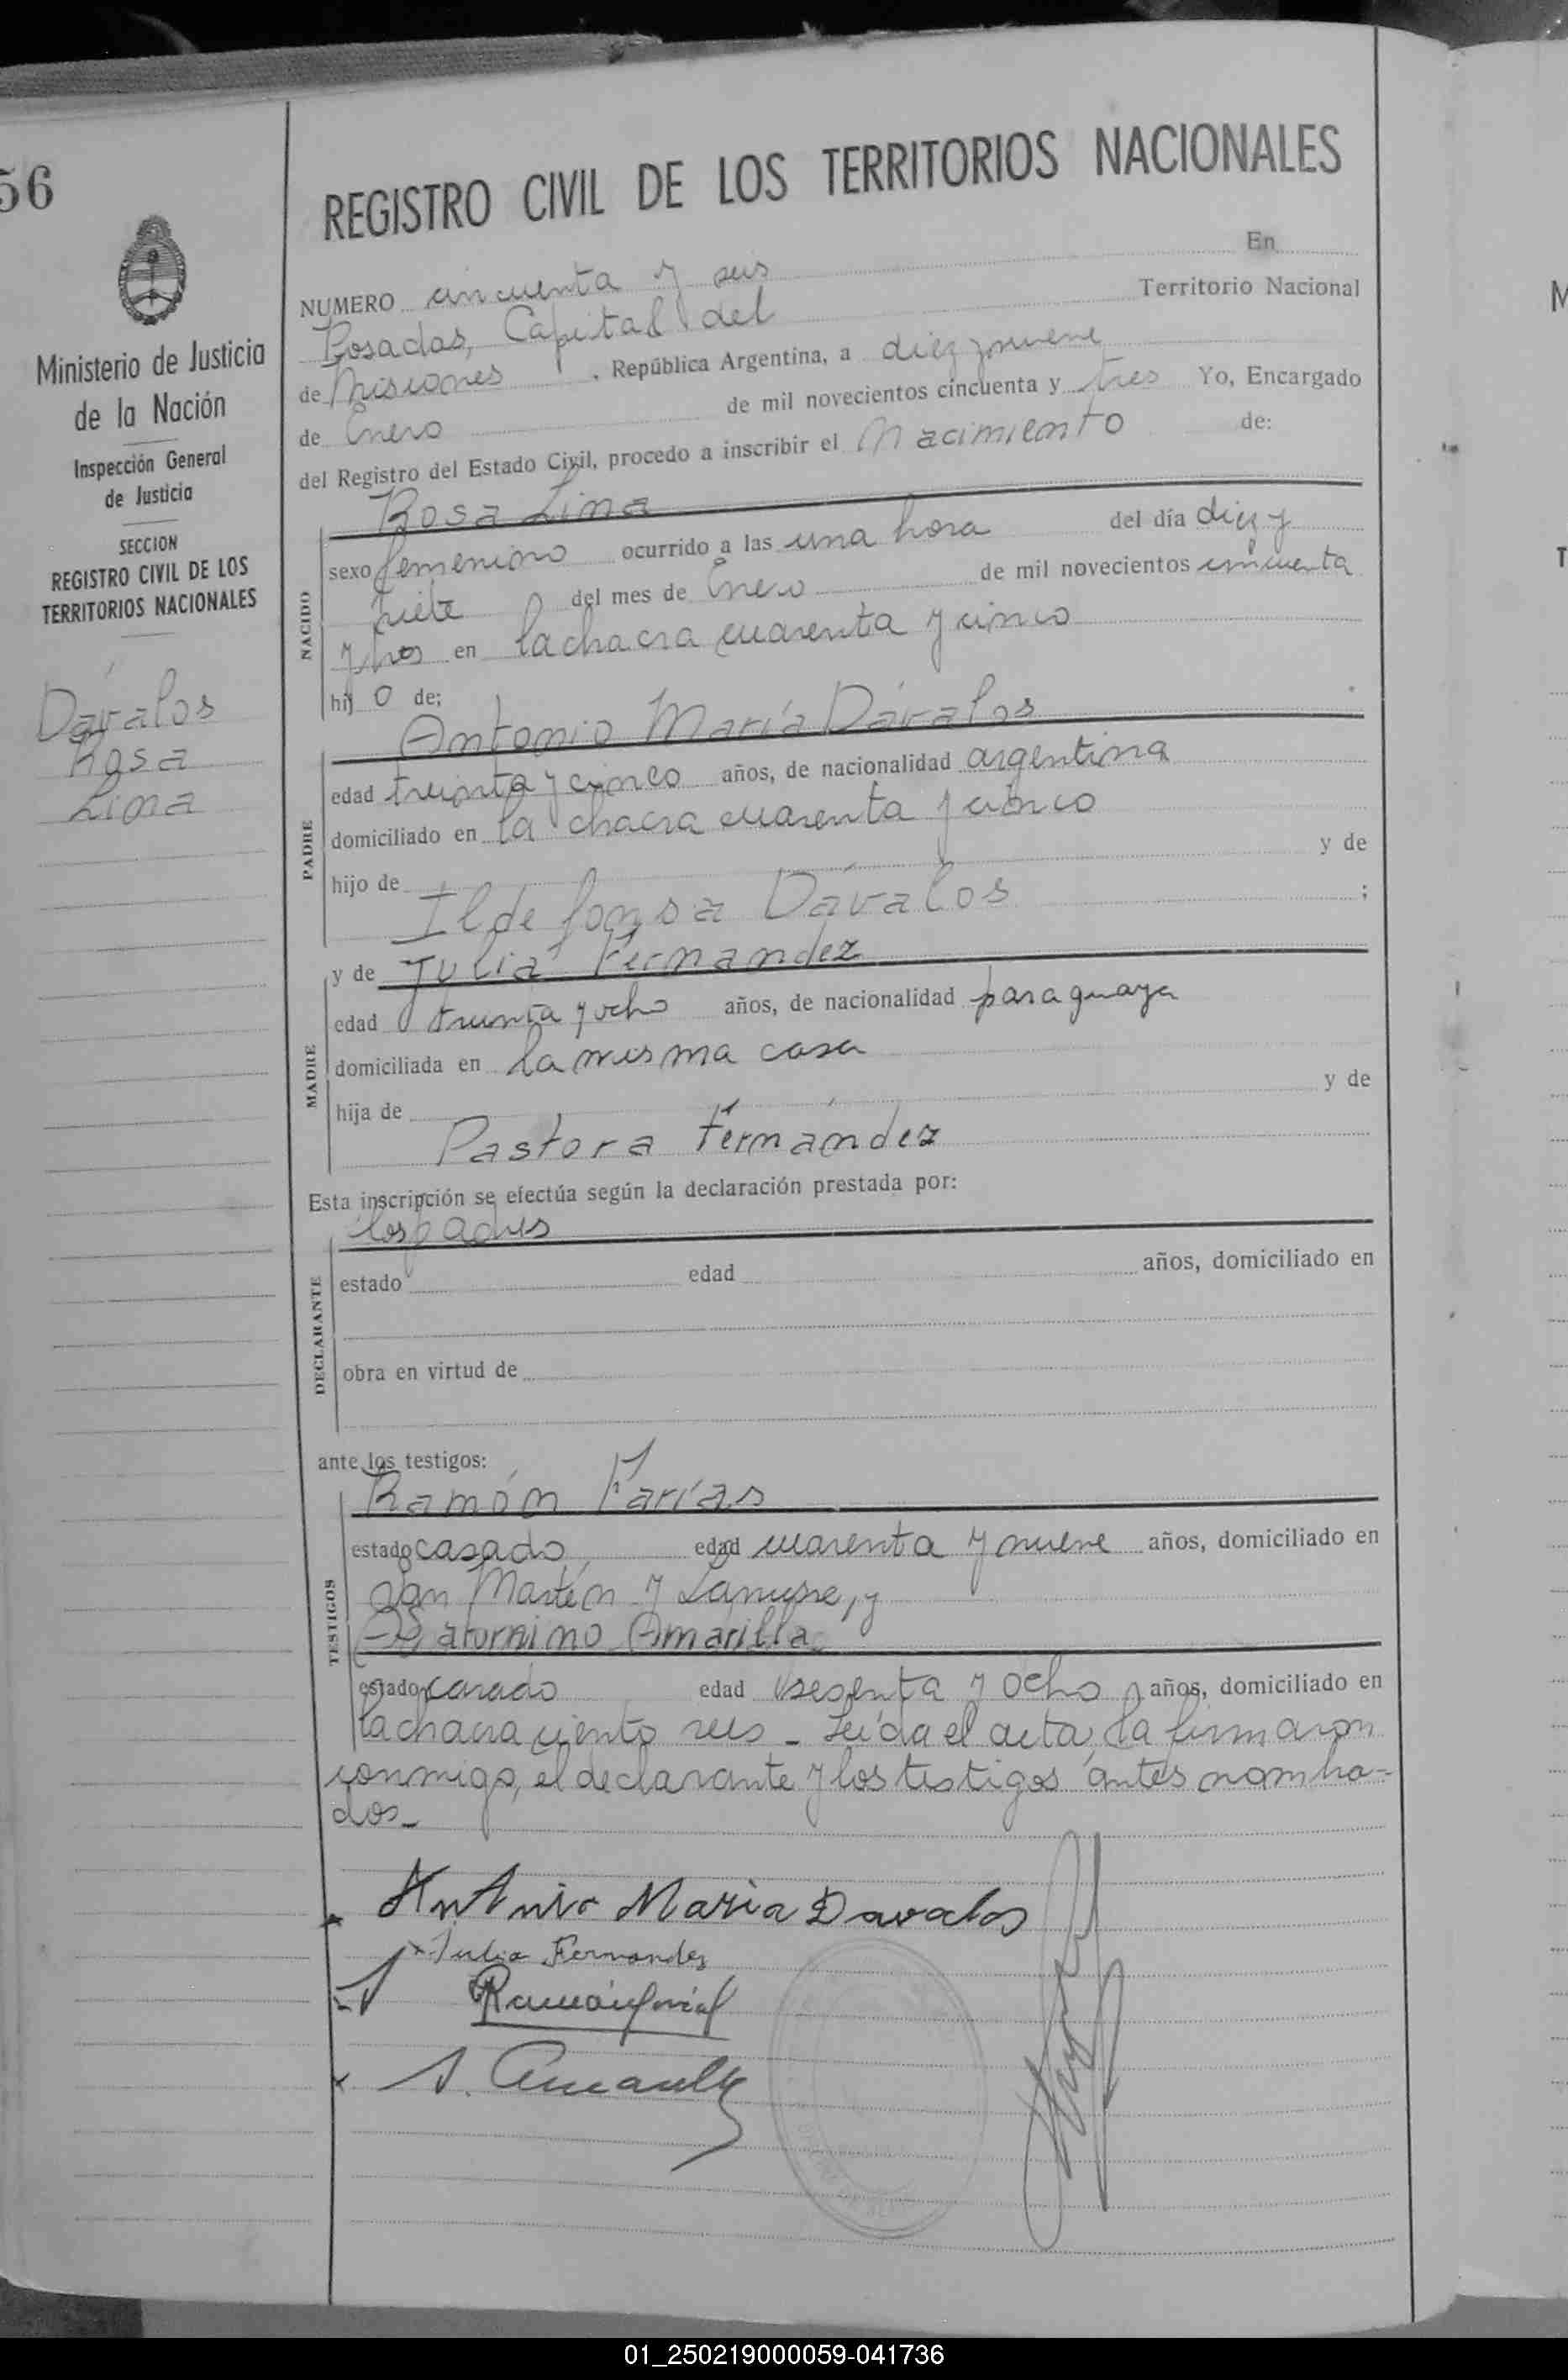 56
Ministerio de Justicia
de la Nación
Inspección General
de Justicia
SECCION
REGISTRO CIVIL DE LOS
TERRITORIOS NACIONALES
Dávalos
Rosa
Lina
REGISTRO CIVIL DE LOS TERRITORIOS NACIONALES
NUMERO cincuenta y seis En
Posadas, Capital del Territorio Nacional
de Misiones, República Argentina, a diez y nueve
de Enero de mil novecientos cincuenta y tres Yo, Encargado
del Registro del Estado Civil, procedo a inscribir el Nacimiento de:
NACIDO
Rosa Lina
sexo femenino ocurrido a las una hora del día diez y
siete del mes de Enero de mil novecientos cincuenta
y tres en la chacra cuarenta y cinco
hij o de;
PADRE
Antonio María Dávalos
edad treinta y cinco años, de nacionalidad argentina
domiciliado en la chacra cuarenta y cinco
hijo de y de
Ildefonsa Dávalos ;
MADRE
y de Julia Fernandez
edad treinta y ocho años, de nacionalidad paraguaya
domiciliada en la misma casa
hija de y de
Pastora Fernández
Esta inscripción se efectúa según la declaración prestada por:
DECLARANTE
los padres
estado edad años, domiciliado en
obra en virtud de
ante los testigos:
TESTIGOS
Ramón Farías
estado casado, edad cuarenta y nueve años, domiciliado en
San Martín y Lanusse, y
Saturnino Amarilla
estado casado edad sesenta y ocho años, domiciliado en
la chacra ciento seis - Leída el acta, la firmaron
conmigo, el declarante y los testigos antes nombra=
dos_
Antonio Maria Davalos
Julia Fernandez
S. Amarilla
M
T
01_250219000059-041736